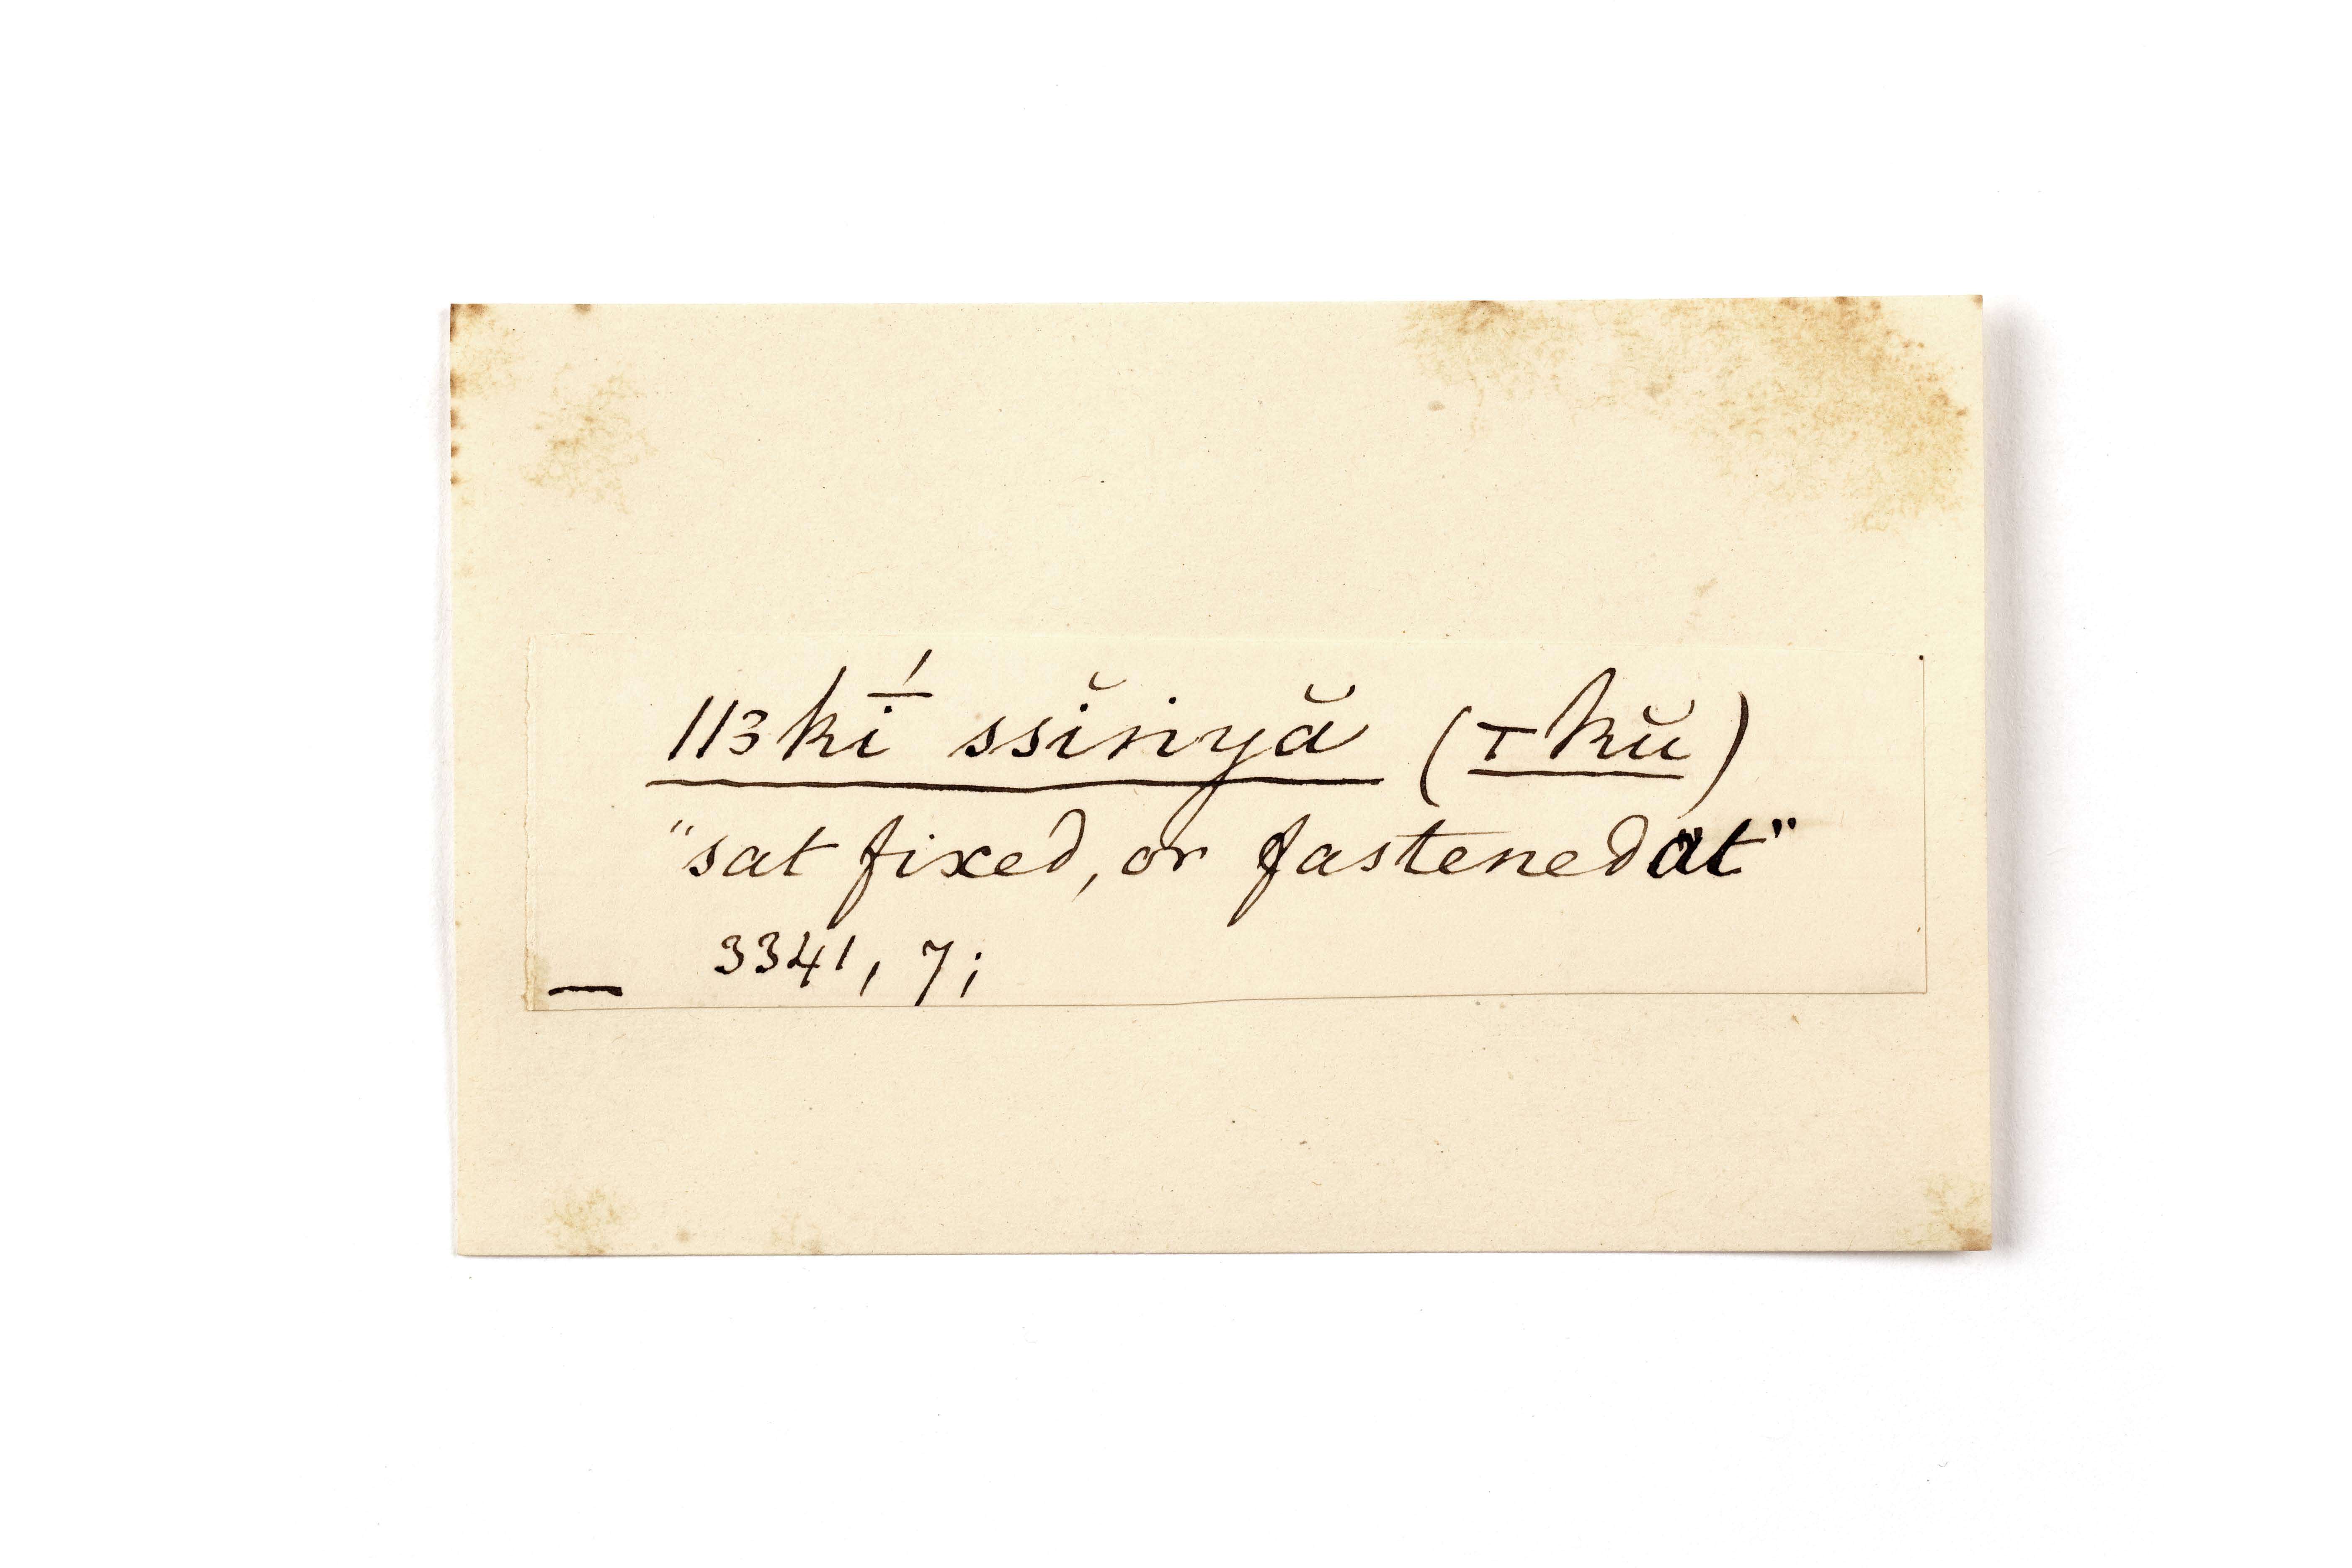 ||3kī́ ssĭṅyă (⊤kŭ)
"sat fixed, or fastened at"
3341, 7;